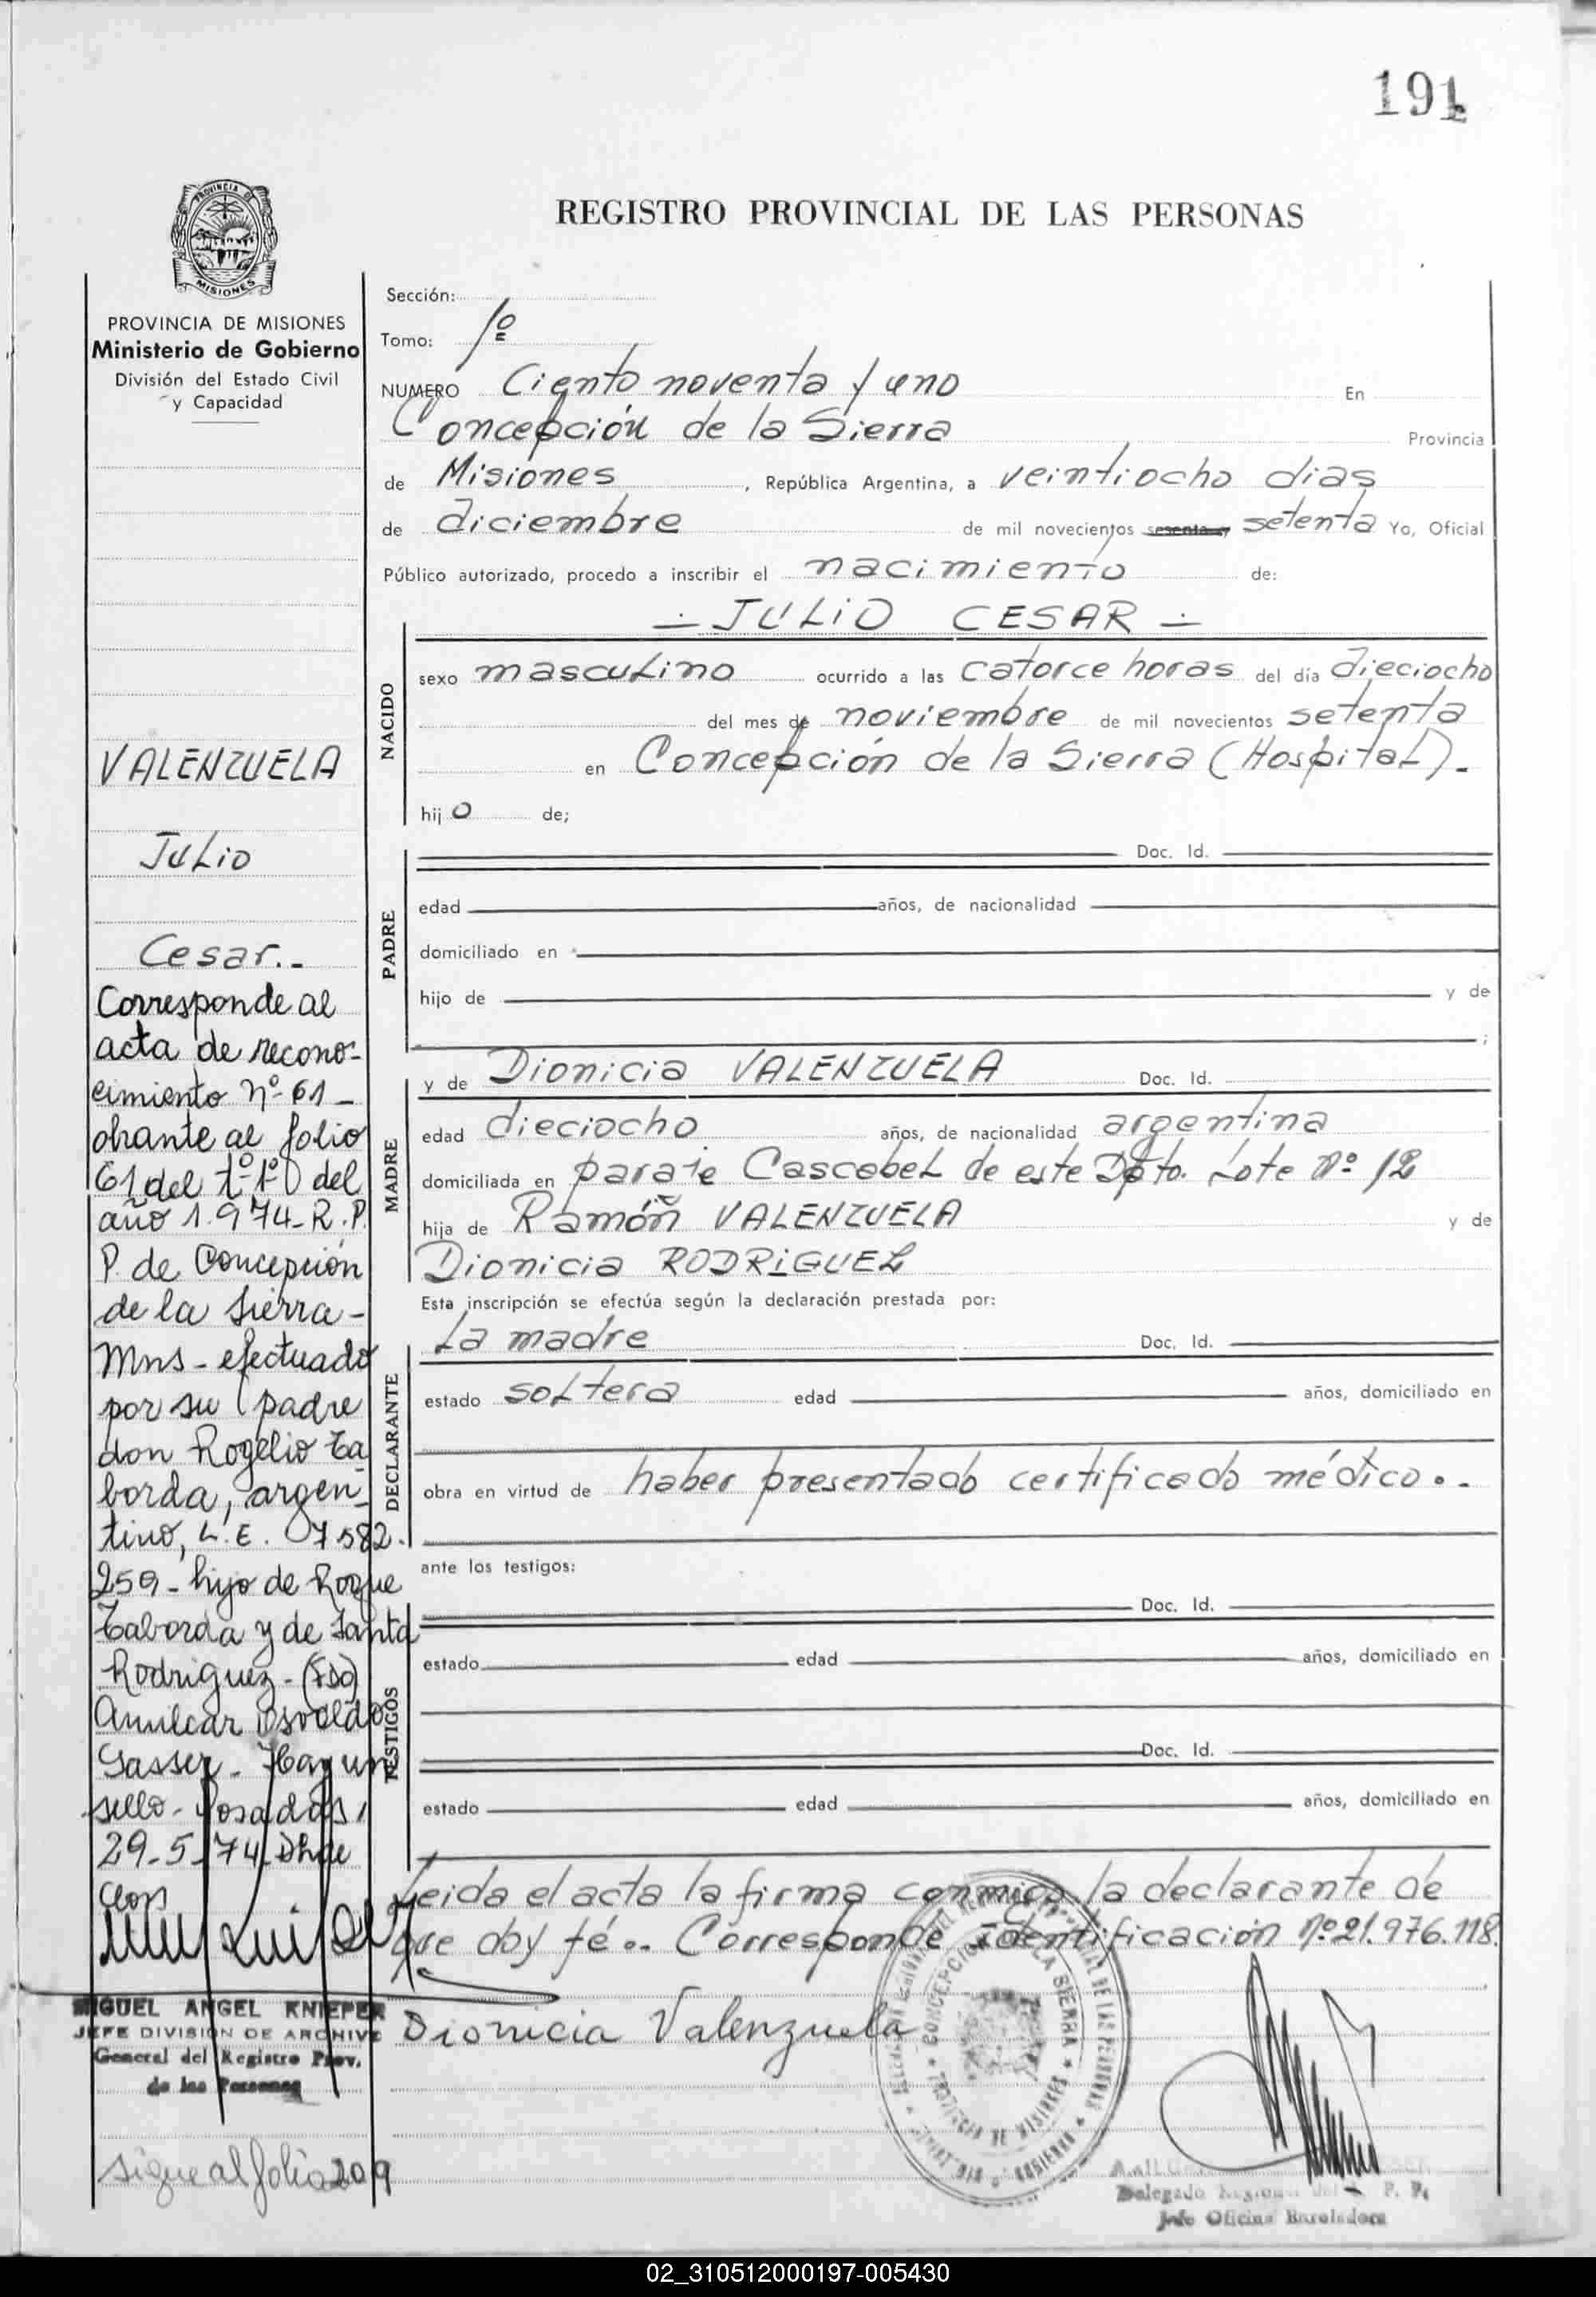 191
PROVINCIA DE
MISIONES
REGISTRO PROVINCIAL DE LAS PERSONAS
PROVINCIA DE MISIONES
Ministerio de Gobierno
División del Estado Civil
y Capacidad
VALENZUELA
Julio
Cesar.-
Corresponde al
acta de recono-
cimiento nº 61-
obrante al folio
61 del tº 1º del
año 1.974- R.P.
P. de Concepción
de la Sierra-
Mns- efectuado
por su padre
don Rogelio Ta
borda, argen-
tino, L.E. 7.582.
259- hijo de Roque
Taborda y de Santa
Rodriguez- (FDO)
Amilcar Osvaldo
Gasser- Hay un
sello- Posadas,
29-5-74
MIGUEL ANGEL KNIEPER
JEFE DIVISION DE ARCHIVO
General del Registro Prov.
de las Personas
sigue al folio 209
Sección:
Tomo: 1º
NUMERO Ciento noventa y uno En
Concepción de la Sierra Provincia
de Misiones, República Argentina, a veintiocho dias
de diciembre de mil novecientos sesenta y setenta Yo, Oficial
Público autorizado, procedo a inscribir el nacimiento de:
-JULIO CESAR-
NACIDO
sexo masculino ocurrido a las catorce horas del día dieciocho
del mes de noviembre de mil novecientos setenta
en Concepción de la Sierra (Hospital).-
hijo de;
PADRE
Doc. Id.
edad años, de nacionalidad
domiciliado en
hijo de y de
;
MADRE
y de Dionicia VALENZUELA Doc. Id.
edad dieciocho años, de nacionalidad argentina
domiciliada en paraje Cascabel de este Dpto. Lote nº 12
hija de Ramón VALENZUELA y de
Dionicia RODRIGUEZ
Esta inscripción se efectúa según la declaración prestada por:
DECLARANTE
La madre Doc. Id.
estado soltera edad años, domiciliado en
obra en virtud de haber presentado certificado médico.-
ante los testigos:
TESTIGOS
Doc. Id.
estado edad años, domiciliado en
Doc. Id.
estado edad años, domiciliado en
Leida el acta la firma conmigo la declarante de
que doy fé.. Corresponde identificación nº 21.976.118
Dionicia Valenzuela
CONCEPCION LA SIERRA
PROVINCIA DE MISIONES
Delegado P. P.
Jefe Oficina
02_310512000197-005430